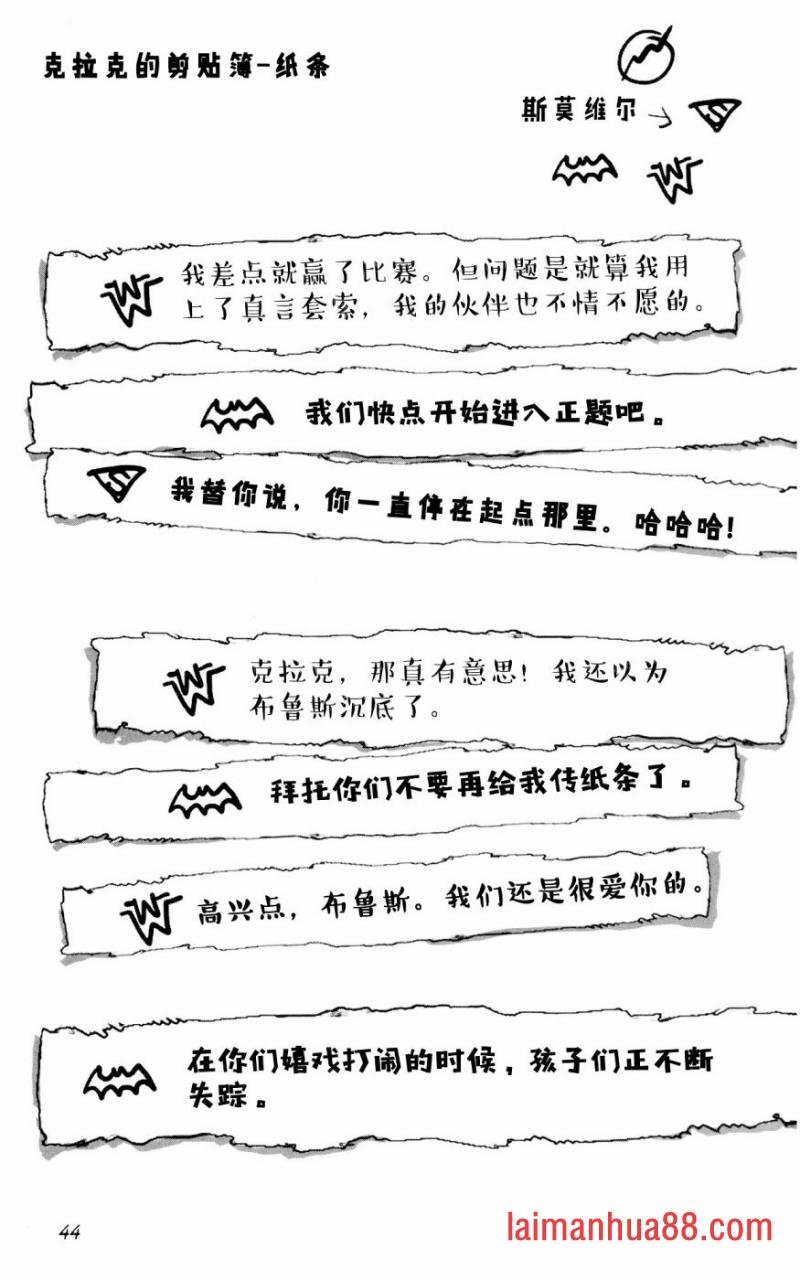 克拉克的剪贴簿-纸条
斯莫维尔
我差点就赢了比赛。但问题是就算我用
上了真言套索，我的伙伴也不情不愿的。
我们快点开始进入正题吧。
我替你说，你一直停在起点那里。哈哈哈！
克拉克，那真有意思！我还以为
布鲁斯沉底了。
拜托你们不要再给我传纸条了。
高兴点，布鲁斯。我们还是很爱你的。
在你们嬉戏打闹的时候，孩子们正不断
失踪。
44
laimanhua88.com